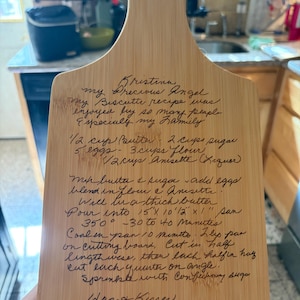 Kristina
my Precious Angel
My Biscotti recipe was
enjoyed by so many people
Especially my Family
1/2 cup Butter 2 cups sugar
5 eggs - 3 cups flour
1/2 cup Anisette (Liquor)
Mix butter & sugar - add eggs
blend in flour & Anisette.
Will be a thick batter
Pour into 15 X 10 1/2 X 1 pan
350° - 30 to 40 minutes
Cool on pan 10 minutes
on cutting board. Cut in half
lengthwise, then each half in half
Cut each on angle.
Sprinkle with Confectionary sugar